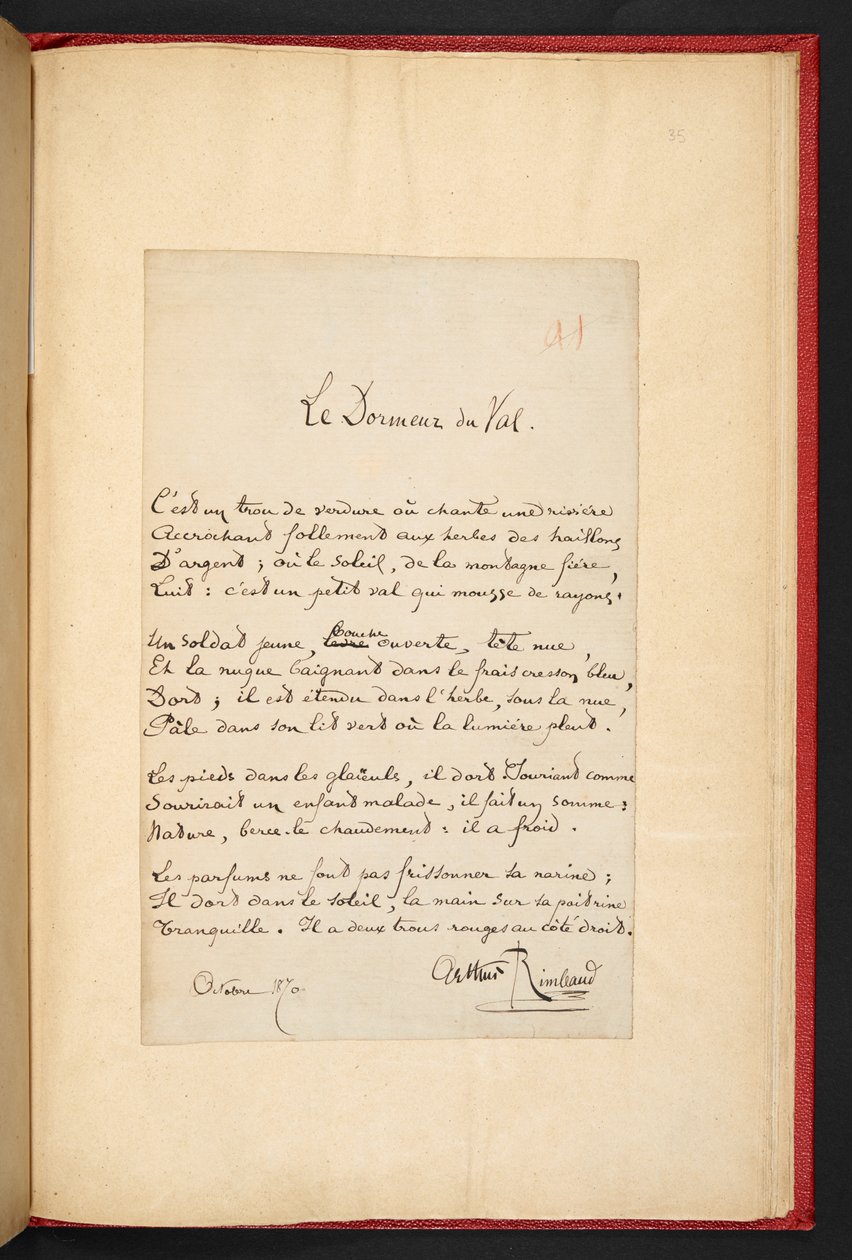 35
41
Le Dormeur du Val.
C'est un trou de verdure où chante une rivière
Accrochant follement aux herbes des haillons
D'argent ; où le soleil, de la montagne fière,
Luit : c'est un petit val qui mousse de rayons.
Un soldat jeune, lèvre bouche ouverte, tête nue,
Et la nuque baignant dans le frais cresson bleu,
Dort ; il est étendu dans l'herbe, sous la nue,
Pâle dans son lit vert où la lumière pleut.
Les pieds dans les glaïeuls, il dort. Souriant comme
Sourirait un enfant malade, il fait un somme :
Nature, berce-le chaudement : il a froid.
Les parfums ne font pas frissonner sa narine ;
Il dort dans le soleil, la main sur sa poitrine
Tranquille. Il a deux trous rouges au côté droit.
Arthur Rimbaud
Octobre 1870